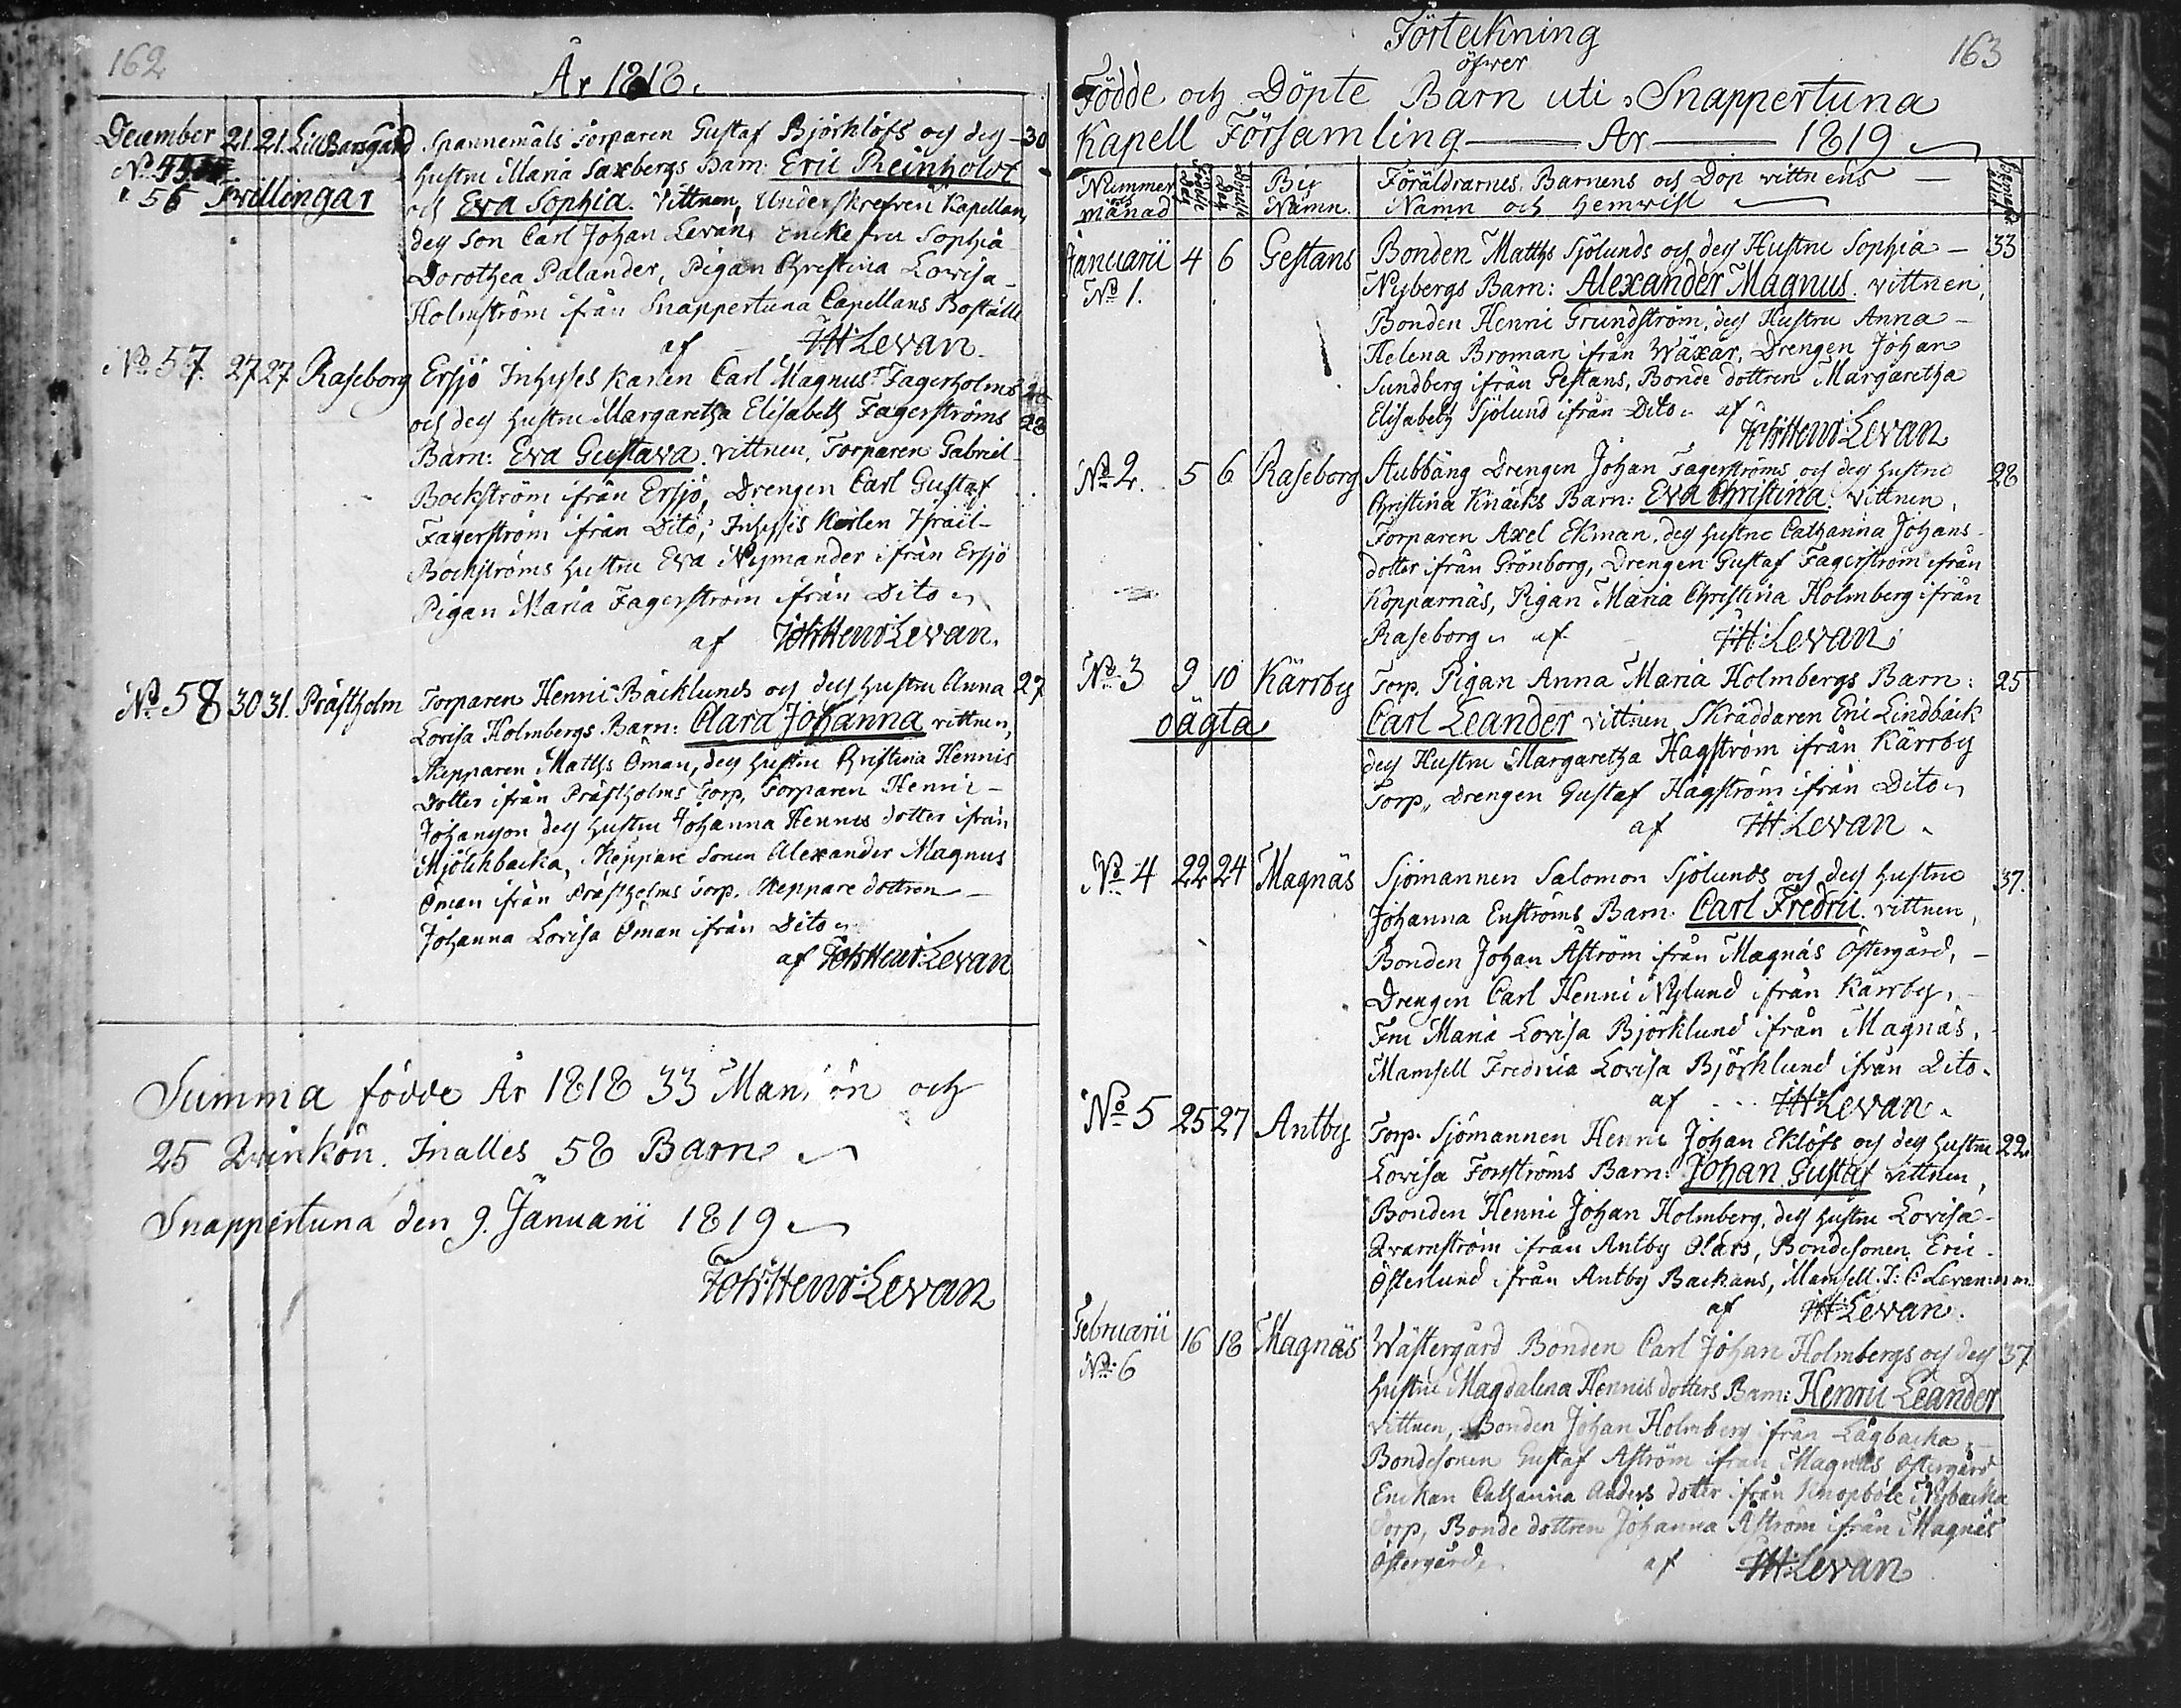 162
År 1818.
December 21. 21. Lill Barsgård Spannemåls Torparen Gustaf Björklöfs och des 30
No. 55
Hustru Maria Saxbergs Barn: Eric Reinholdt
56 Tvillingar
och Eva Sophia. Vittnen, Underskrefven Kapellan,
des Son Carl Johan Levan, Encke fru Sophia
Dorothea Palander, Pigan Christina Lovisa
Holmström ifrån Snappertuna Capellans Boställe
af JH Levan.
No. 57. 27 27 Raseborg Ersjö Inhyses Karlen Carl Magnus Fagerholms
och des Hustru Margaretha Elisabeth Fagerströms 28
Barn: Eva Gustava. vittnen, Torparen Gabriel
Bockström ifrån Ersjö, Drengen Carl Gustaf
Fagerström ifrån Dito, Inhysis Karlen Israil
Bockströms hustru Eva Nymander ifrån Ersjö
Pigan Maria Fagerström ifrån Dito
af Joh: Henr: Levan.
No. 58 30 31. Prästholm Torparen Henric Bäcklunds och des hustru Anna 27
Lovisa Holmbergs Barn: Clara Johanna vittnen,
Skepparen Matths Öman, des hustru Christina Henrics
Dotter ifrån Prästholms Torp, Torparen Henric
Johansson des hustru Johanna Henrics dotter ifrån
Mjölchbacka, Skeppare Sonen Alexander Magnus
Öman ifrån Prästholms Torp. Skeppare dottren
Johanna Lovisa Öman ifrån Dito
af Joh: Henr: Levan
Summa födde År 1818 33 Mankön och
25 Qvinkön. Inalles 58 Barn
Snappertuna den 9. Januarii 1819
Joh: Henr: Levan
163
Förteckning
öfwer
Födde och Döpte Barn uti Snappertuna
Kapell Församling — År — 1819
Nummer och månad Födelse Dag Döpelse Dag Bys Namn. Föräldrarnes, Barnens och Dop vittnens
Namn och Hemwist
Januarii 4 6 Gestans Bonden Matths Sjölunds och des Hustru Sophia 33
No 1. Nybergs Barn: Alexander Magnus. vittnen,
Bonden Henric Grundström, des Hustru Anna
Helena Broman ifrån Wäxär, Drengen Johan
Sundberg ifrån Gestans, Bonde dottren Margaretha
Elisabeth Sjölund ifrån Dito. af
Joh: Henr: Levan
No 2. 5 6 Raseborg Stubbäng Drengen Johan Fagerströms och des hustru 28
Christina Knäcks Barn: Eva Christina. Vittnen,
Torparen Axel Ekman, des hustru Catharina Johans
dotter ifrån Grönborg, Drengen Gustaf Fagerström ifrån
Kopparnäs, Pigan Maria Christina Holmberg ifrån
Raseborg. af J:H: Levan
No 3 9 10 Kärrby Torp. Pigan Anna Maria Holmbergs Barn: 25
oägta Carl Leander vittnen Skräddaren Eric Lindbäck
des Hustru Margaretha Hagström ifrån Kärrby
Torp, Drengen Gustaf Hagström ifrån Dito
af JH Levan.
No 4 22 24 Magnäs Sjömannen Salomon Sjölunds och des hustru 37.
Johanna Enströms Barn. Carl Fredric. vittnen,
Bonden Johan Åström ifrån Magnäs Östergård,
Drengen Carl Henric Nylund ifrån Kärrby,
Fru Maria Lovisa Björklund ifrån Magnäs,
Mamsell Fredrica Lovisa Björklund ifrån Dito.
af JH Levan.
No 5 25 27 Antby Torp. Sjömannen Henric Johan Eklöfs och des hustru 22
Lovisa Forströms Barn: Johan Gustaf vittnen,
Bonden Henric Johan Holmberg, des hustru Lovisa
Qvarnström ifrån Antby Olars, Bondesonen Eric
Österlund ifrån Antby Backans, Mamsell. J: C: Levan:
af JH Levan.
Februarii 16 18 Magnäs Wästergård Bonden Carl Johan Holmbergs och des 37
No 6 hustru Magdalena Henrics dotters Barn: Henric Leander
vittnen, Bonden Johan Holmberg ifrån Lågbacka,
Bondesonen Gustaf Åström ifrån Magnäs Östergård
Enckan Catharina Anders dotter ifrån Knopböle Nybacka
Torp, Bonde dottren Johanna Åström ifrån Magnäs
Östergård. af JH Levan